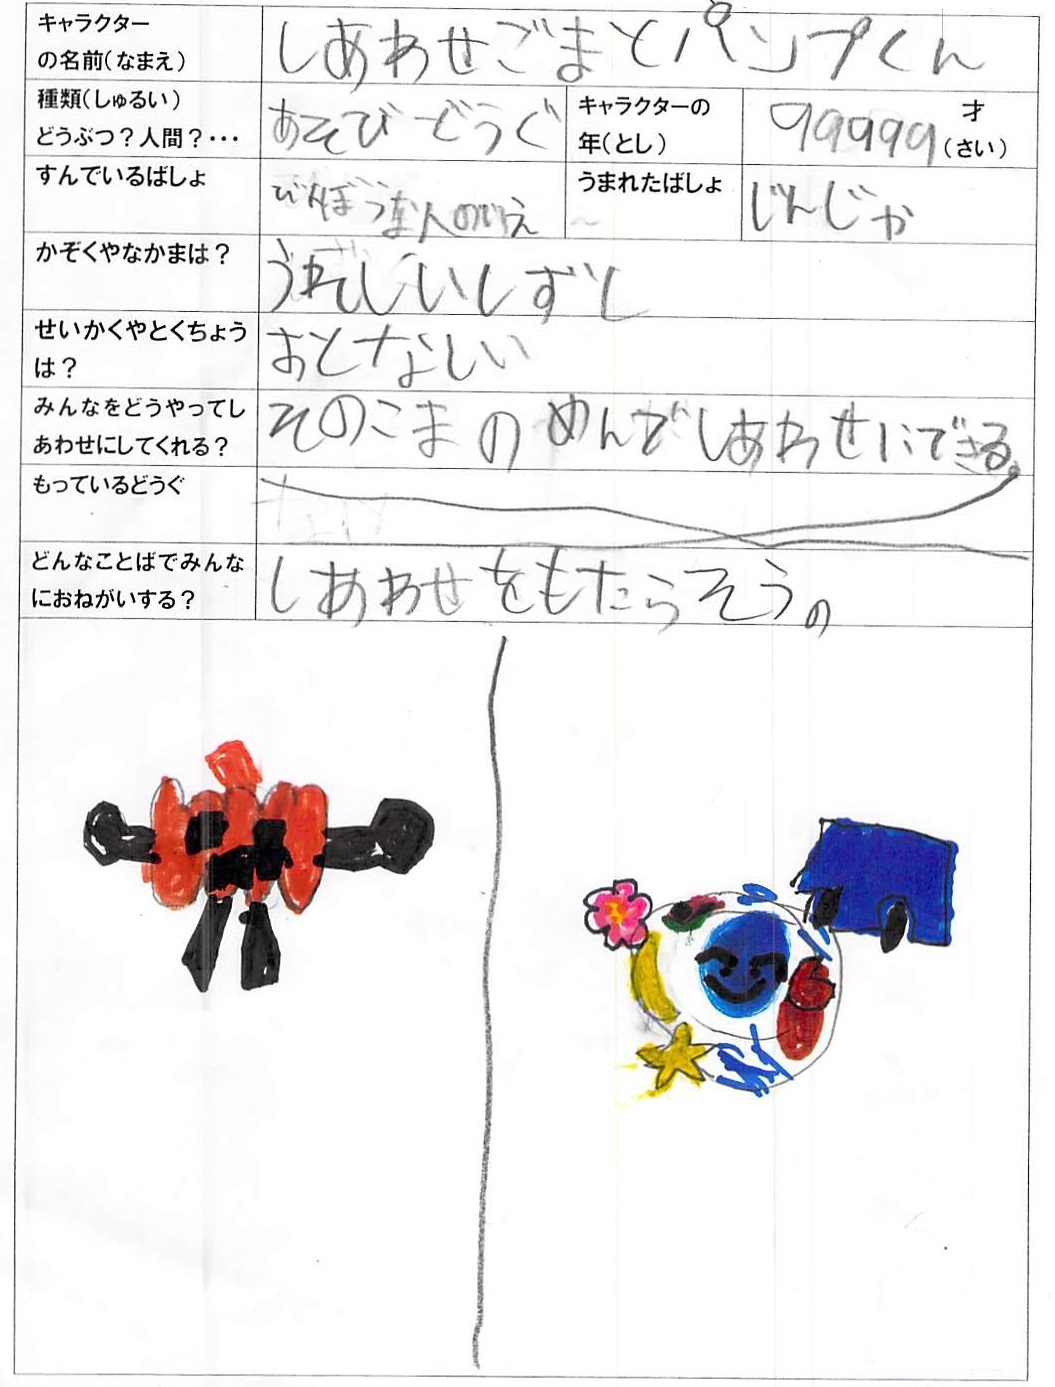 キャラクター
の名前(なまえ)
しあわせごまとパンプくん
種類(しゅるい)
どうぶつ?人間?・・・
あそびどうぐ
キャラクターの
年(とし)
99999
才
(さい)
すんでいるばしょ
びんぼうな人のいえ
うまれたばしょ
じんじゃ
かぞくやなかまは?
うれしいしずし
せいかくやとくちょう
は?
おとなしい
みんなをどうやってし
あわせにしてくれる?
そのこまのめんでしあわせにできる。
もっているどうぐ
どんなことばでみんな
におねがいする?
しあわせをもたらそうの